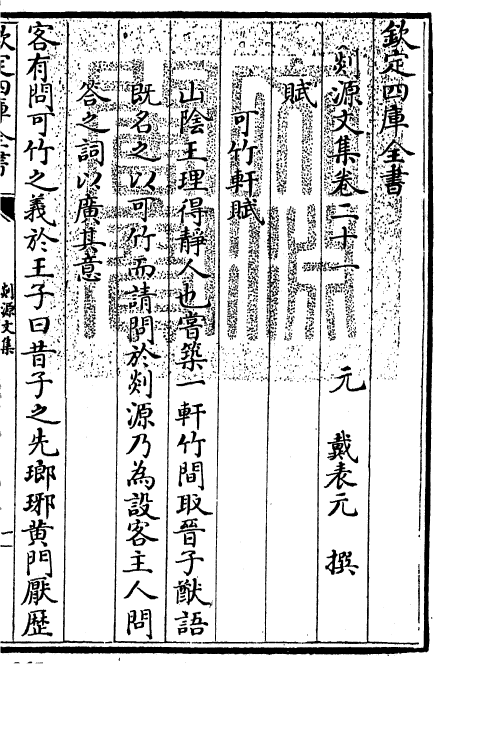 欽定四庫全書
剡源文集卷二十一
元　戴表元　撰
賦
可竹軒賦
山陰王理得靜人也嘗築一軒竹間取晉子猷語
既名之以可竹而請閎於剡源乃為設客主人問
答之詞以廣其意
客有問可竹之義於王子曰昔子之先瑯琊黄門厭歴
欽定四庫全書
剡源文集
一